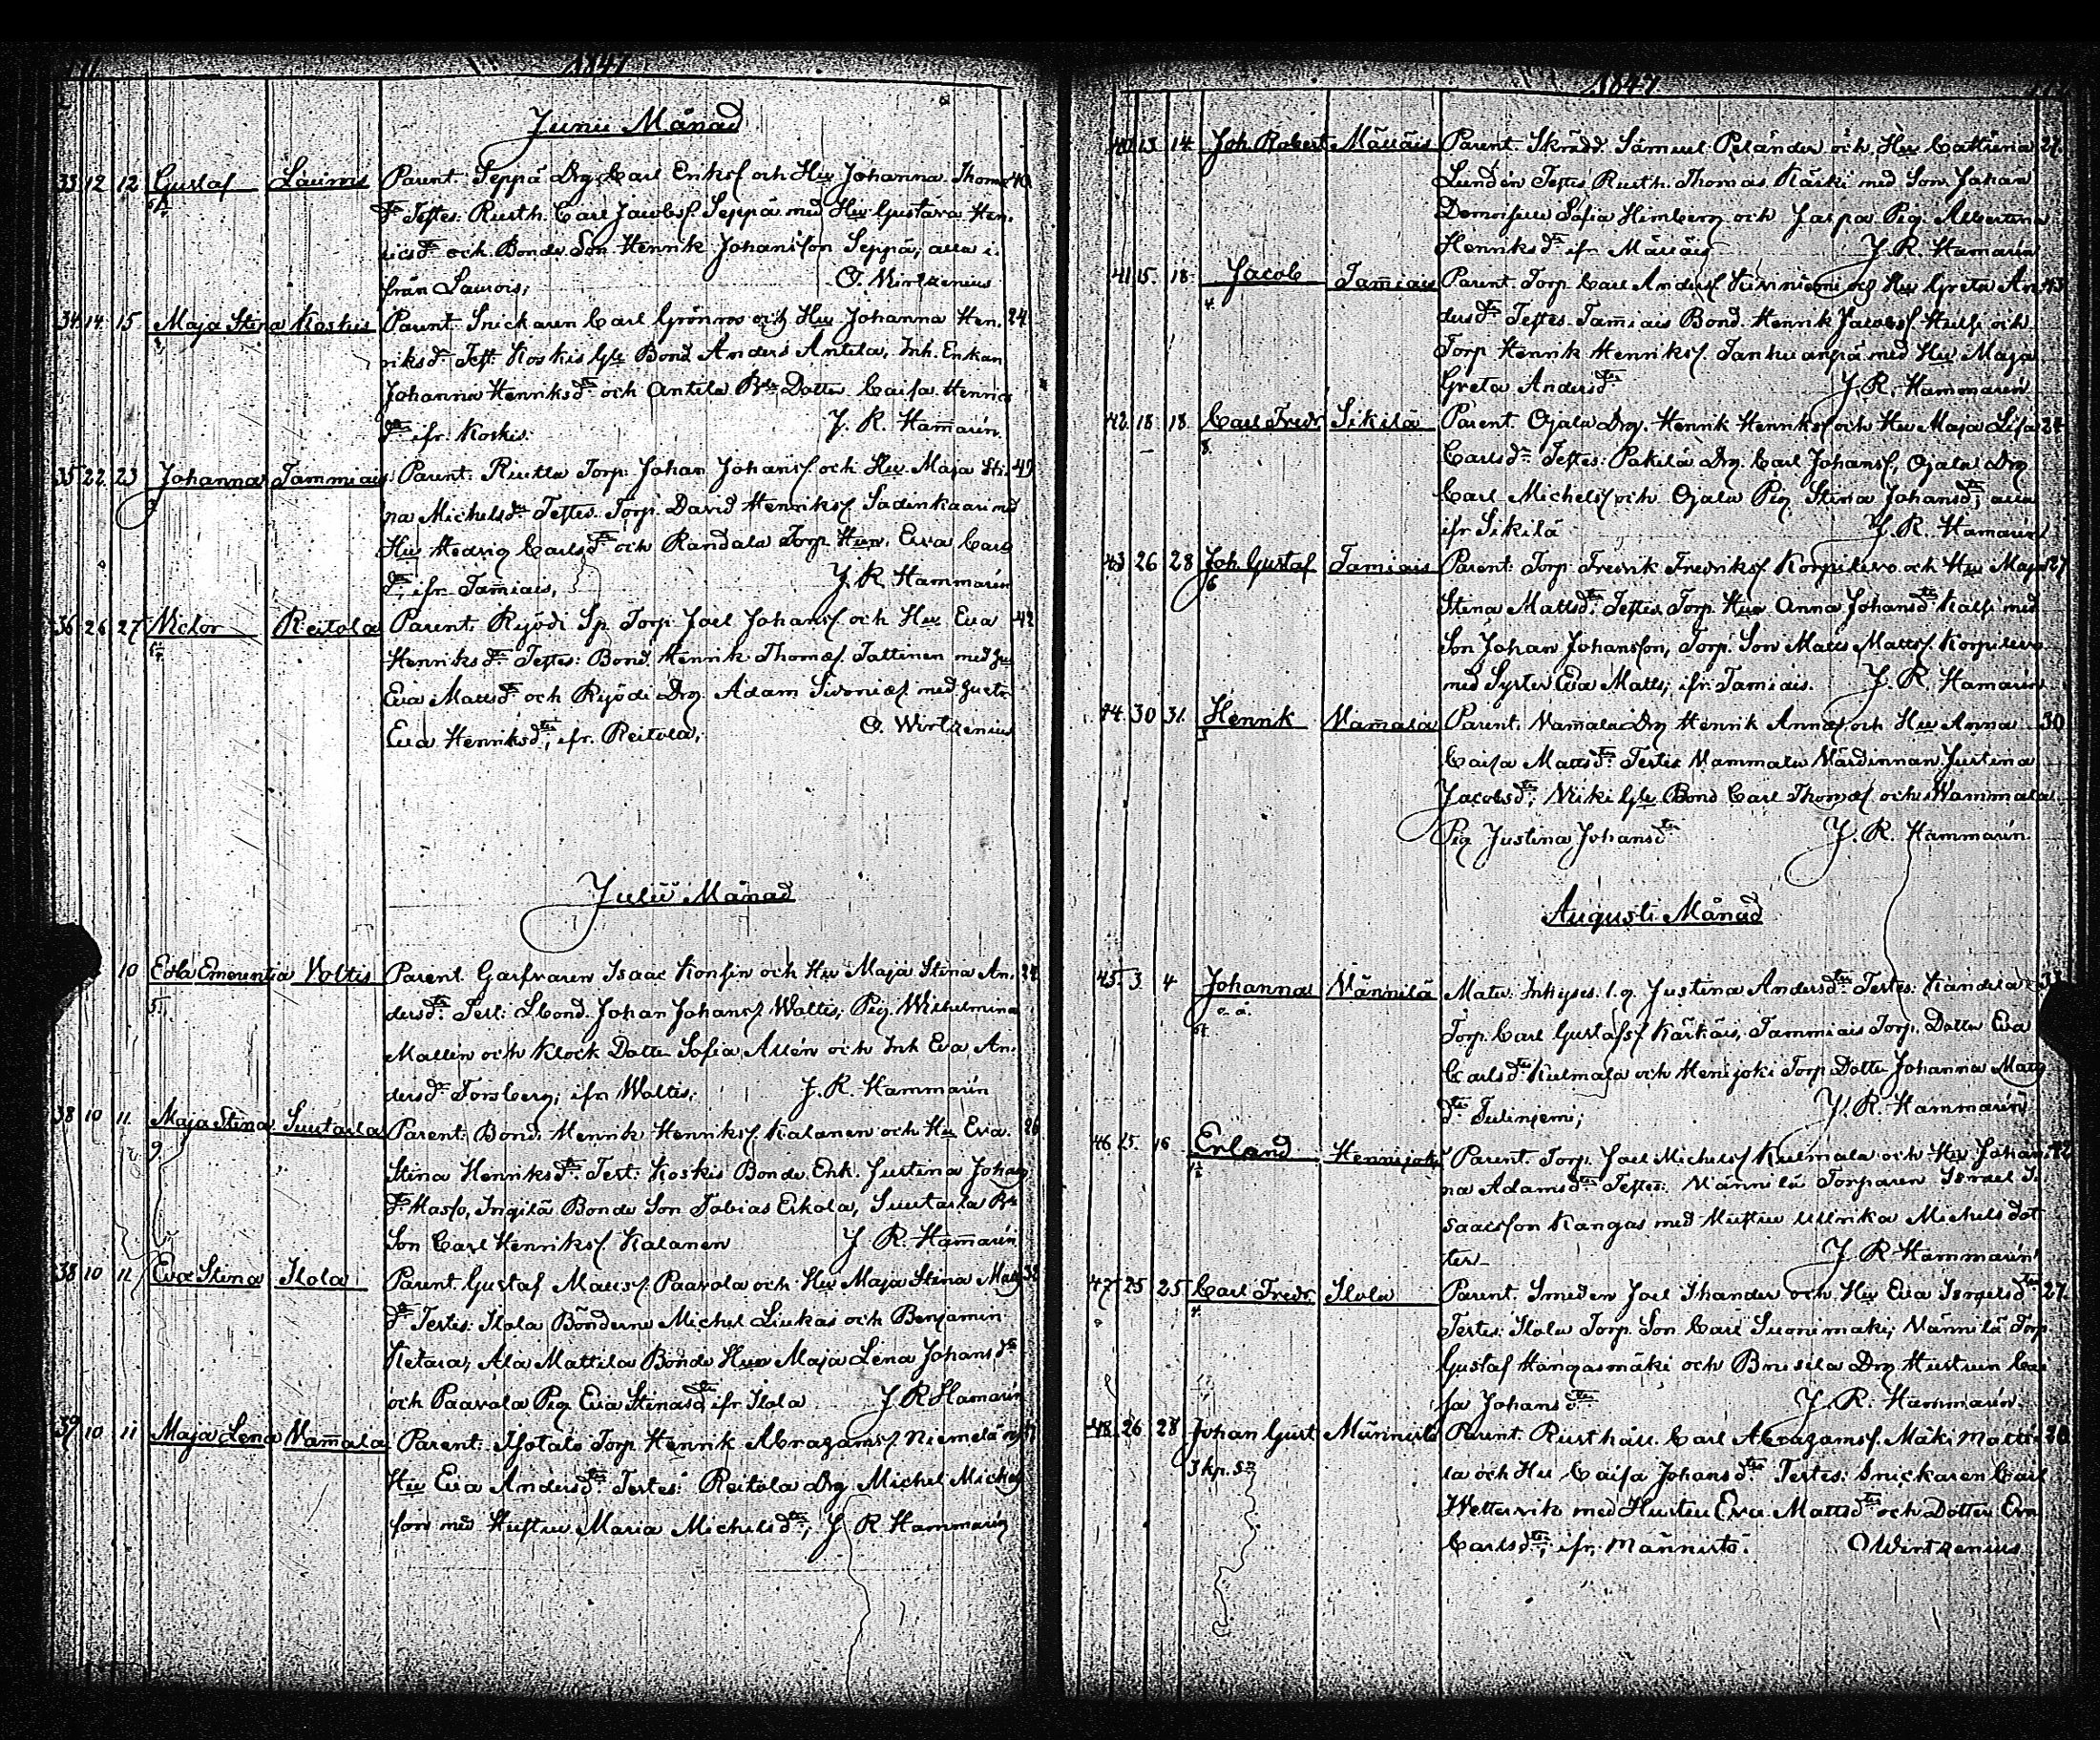 1847
Junii Månad
33. 12 12 Gustaf Laurois Parent. Seppä Drg Carl Eriksf och Hu Johanna Thoms 40
dr Testes: Rusth. Carl Jacobsf. Seppä med Hu Gustava Hen-
ricsdr och Bonde Son Henrik Johansson Seppä, alla i-
från Laurois; O. Wirtzenius
34 14 15 Maja Stina Koskis Parent. Snickaren Carl Grönroos och Hu Johanna Hen- 24
riksdr Test. Koskis Bond Anders Antila, Inh. Enkan
Johanna Henriksdr och Antila Bde Dotter Caisa Henrics
dr ifr. Koskis. J. R. Hamarin.
35 22 23 Johanna Tammiais Parent: Torp: Johan Johansf och Hu. Maja Sti- 49
na Michelsdr Testes. Torp. David Henriksf. Sadinkaari md
Hu Hedvig Carlsdr och Randala Torp Hun. Eva Carls
dr, ifr Tamiais, J. R. Hammarin
36 26 27 Victor Reitola Parent. Ryödi Sp Torp Joel Johansf och Hu Eva 42
Henriksdr Testes: Bond. Henrik Thomæf. Tattinen med hu
Eva Mattsdr och Ryödi Drg Adam Simonsf. med hustr.
Eva Henriksdr, ifr. Reitola, O. Wirtzenius
Julii Månad
10 Eda Emerentia Voltis Parent. Garfvaren Isaac Konsin och Hu Maja Stina An- 24
5.
dersdr. Test: Lbond. Johan Johansf Woltis; Pig. Wilhelmina
Mallen och Klock Dotter Sofia Allén och Inh Eva An-
dersdr Forsberg; ifrn Woltis, J. R. Hammarin
38 10 11 Maja Stina Suutarla Parent: Bond. Henrik Henriksf. Kalanen och Hu Eva 26
9.
Stina Henriksdr Test: Koskis Bonde Enk. Justina Johans
dr Masso, Ingilä Bonde Son Tobias Eikola, Suutarla Bde
Son Carl Henriksf. Kalanen J R. Hamarin
38 10 11 Eva Stina Ilola Parent. Gustaf Mattsf. Paavola och Hu Maja Stina Matts 32
dr Testes: Ilola Bönderne Michel Liukas och Benjamin
Ketara, Ala Mattila Bonde Hun Maja Lena Johansdr
och Paavola Pig. Eva Stinasd, ifr Ilola J R Hamarin
39 10 11 Maja Lena Vamala Parent: Isotalo Torp. Henrik Abrahamsf. Niemelä
Hu Eva Andersdr. Testes: Reitola Drg Michel Michels
son med Hustru Maria Michelsdr; J R Hammarin
1847
40 13 14 Joh. Robert Mäuäis Parent. Skrädd. Samuel Peländer och Hu Cathrina 27.
Lundén Testes Rusth. Thomas Käiki med Son Johan
Demoiselle Sofia Himberg och Jaspa Pig. Albertina
Henriksdr ifr Mäuäis J R. Hamarin
41 15. 18. Jacob Tamiais Parent. Torp Carl Andersf Kivniemi och Hu Greta An 43
4.
dersdr Testes. Tamiais Bond. Henrik Jacobsf. Hulsi och
Torp Henrik Henriksf. Tanhuanpä med Hu Maja
Greta Andersdr J. R. Hammarin
42. 18 18. Carl Fredr Sikilä Parent. Ojala Drg. Henrik Henriksf och Hu Maja Lisa 24
8.
Carlsdr. Testes: Pakila Drg. Carl Johansf, Ojala Drg
Carl Michelsf och Ojala Pig Stina Johansdr; alla
ifr Sikilä J. R. Hamarin
43 26 28 Joh. Gustaf Tamiais Parent. Torp. Fredrik Fredriksf Korpilevo och Hu Maja 27
6
Stina Mattsdr. Testes Torp. Hun Anna Johansdr Kalsi med
Son Johan Johansson, Torp. Son Matts Mattsf. Korpilevo
med Syster Eva Matts; ifr. Tamiais. J. R. Hamarin
44. 30 31. Henrik Vamala Parent. Vamala Drg Henrik Annæf och Hu Anna 30
Caisa Mattsdr. Testes Vammala Värdinnan Justina
Jacobsdr, Niki Bond Carl Thomæf och Wammala
Pig Justina Johansdr J. R. Hammarin.
Augusti Månad
45 3 4 Johanna Vännilä Mater. Inhyses l. q. Justina Andersdr Testes: Kandela 33
o. ä.
Torp. Carl Gustafsf Kärkäis, Tammiais Torp. Dotter Eva
Carlsdr Kulmala och Henijoki Torp. Dotter Johanna Matts
dr Tuliniemi; J. R. Hammarin
46 15. 16 Erland Hennijoki Parent. Torp. Joel Michelsf Kulmala och Hu Johan- 42
na Adamsdr Testes: Vännilä Torparen Israel I-
saacsson Kangas med Hustru Ullrika Michelsdot
ter J R Hammarin
47 25 25 Carl Fredr Ilola Parent. Smeden Joel Thander och Hu Eva Israelsdr 27.
4.
Testes: Ilola Torp. Son Carl Suonimaki; Vännilä Torp
Gustaf Hangasmäki och Drg. Hustrun Cai
sa Johansdr J. R. Hammarin.
48. 26 28 Johan Gust Männistö Parent. Rusthåll. Carl Abrahamsf. Mäki Matti- 20
3 kp.
la och Hu Caisa Johansdr Testes: Snickaren Carl
Wettervik med Hustru Eva Mattsdr och Dotter Eva
Carlsdr; ifr; Männistö. O Wirtzenius